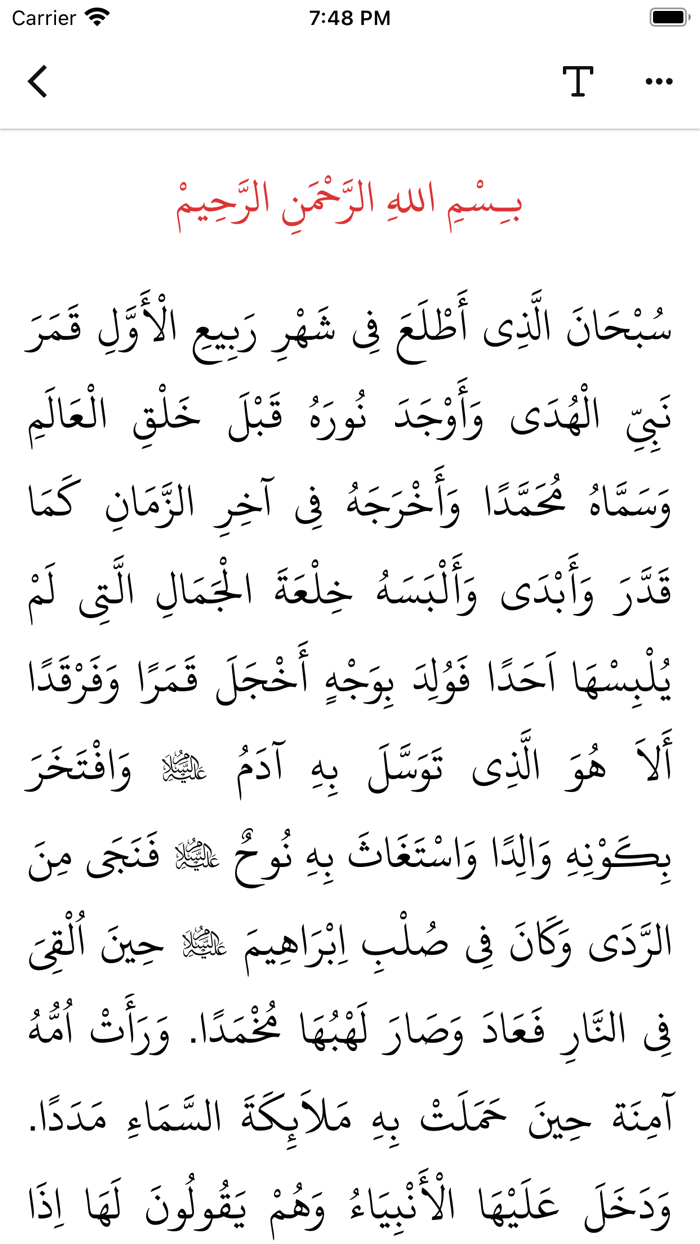 Carrier 7:48 PM
T
بِـسْمِ اللهِ الرَّحْمَنِ الرَّحِيمْ
سُبْحَانَ الَّذِى أَطْلَعَ فِى شَهْرِ رَبِيعِ الْأَوَّلِ قَمَرَ
نَبِيِّ الْهُدَى وَأَوْجَدَ نُورَهُ قَبْلَ خَلْقِ الْعَالَمِ
وَسَمَّاهُ مُحَمَّدًا وَأَخْرَجَهُ فِى آخِرِ الزَّمَانِ كَمَا
قَدَّرَ وَأَبْدَى وَأَلْبَسَهُ خِلْعَةَ الْجَمَالِ الَّتِى لَمْ
يُلْبِسْهَا اَحَدًا فَوُلِدَ بِوَجْهٍ أَخْجَلَ قَمَرًا وَفَرْقَدًا
أَلاَ هُوَ الَّذِى تَوَسَّلَ بِهِ آدَمُ عليه السلام وَافْتَخَرَ
بِكَوْنِهِ وَالِدًا وَاسْتَغَاثَ بِهِ نُوحٌ عليه السلام فَنَجَى مِنَ
الرَّدَى وَكَانَ فِى صُلْبِ اِبْرَاهِيمَ عليه السلام حِينَ اُلْقِىَ
فِى النَّارِ فَعَادَ وَصَارَ لَهْبُهَا مُخْمَدًا. وَرَأَتْ اُمُّهُ
آمِنَة حِينَ حَمَلَتْ بِهِ مَلاَئِكَةَ السَّمَاءِ مَدَدًا.
وَدَخَلَ عَلَيْهَا الْأَنْبِيَاءُ وَهُمْ يَقُولُونَ لَهَا اِذَا